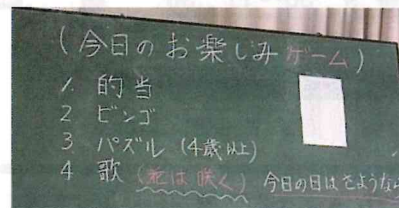 (今日のお楽しみゲーム)
1. 的当
2 ビンゴ
3 パズル (4歳以上)
4 歌 (花は咲く) 今日の日はさような